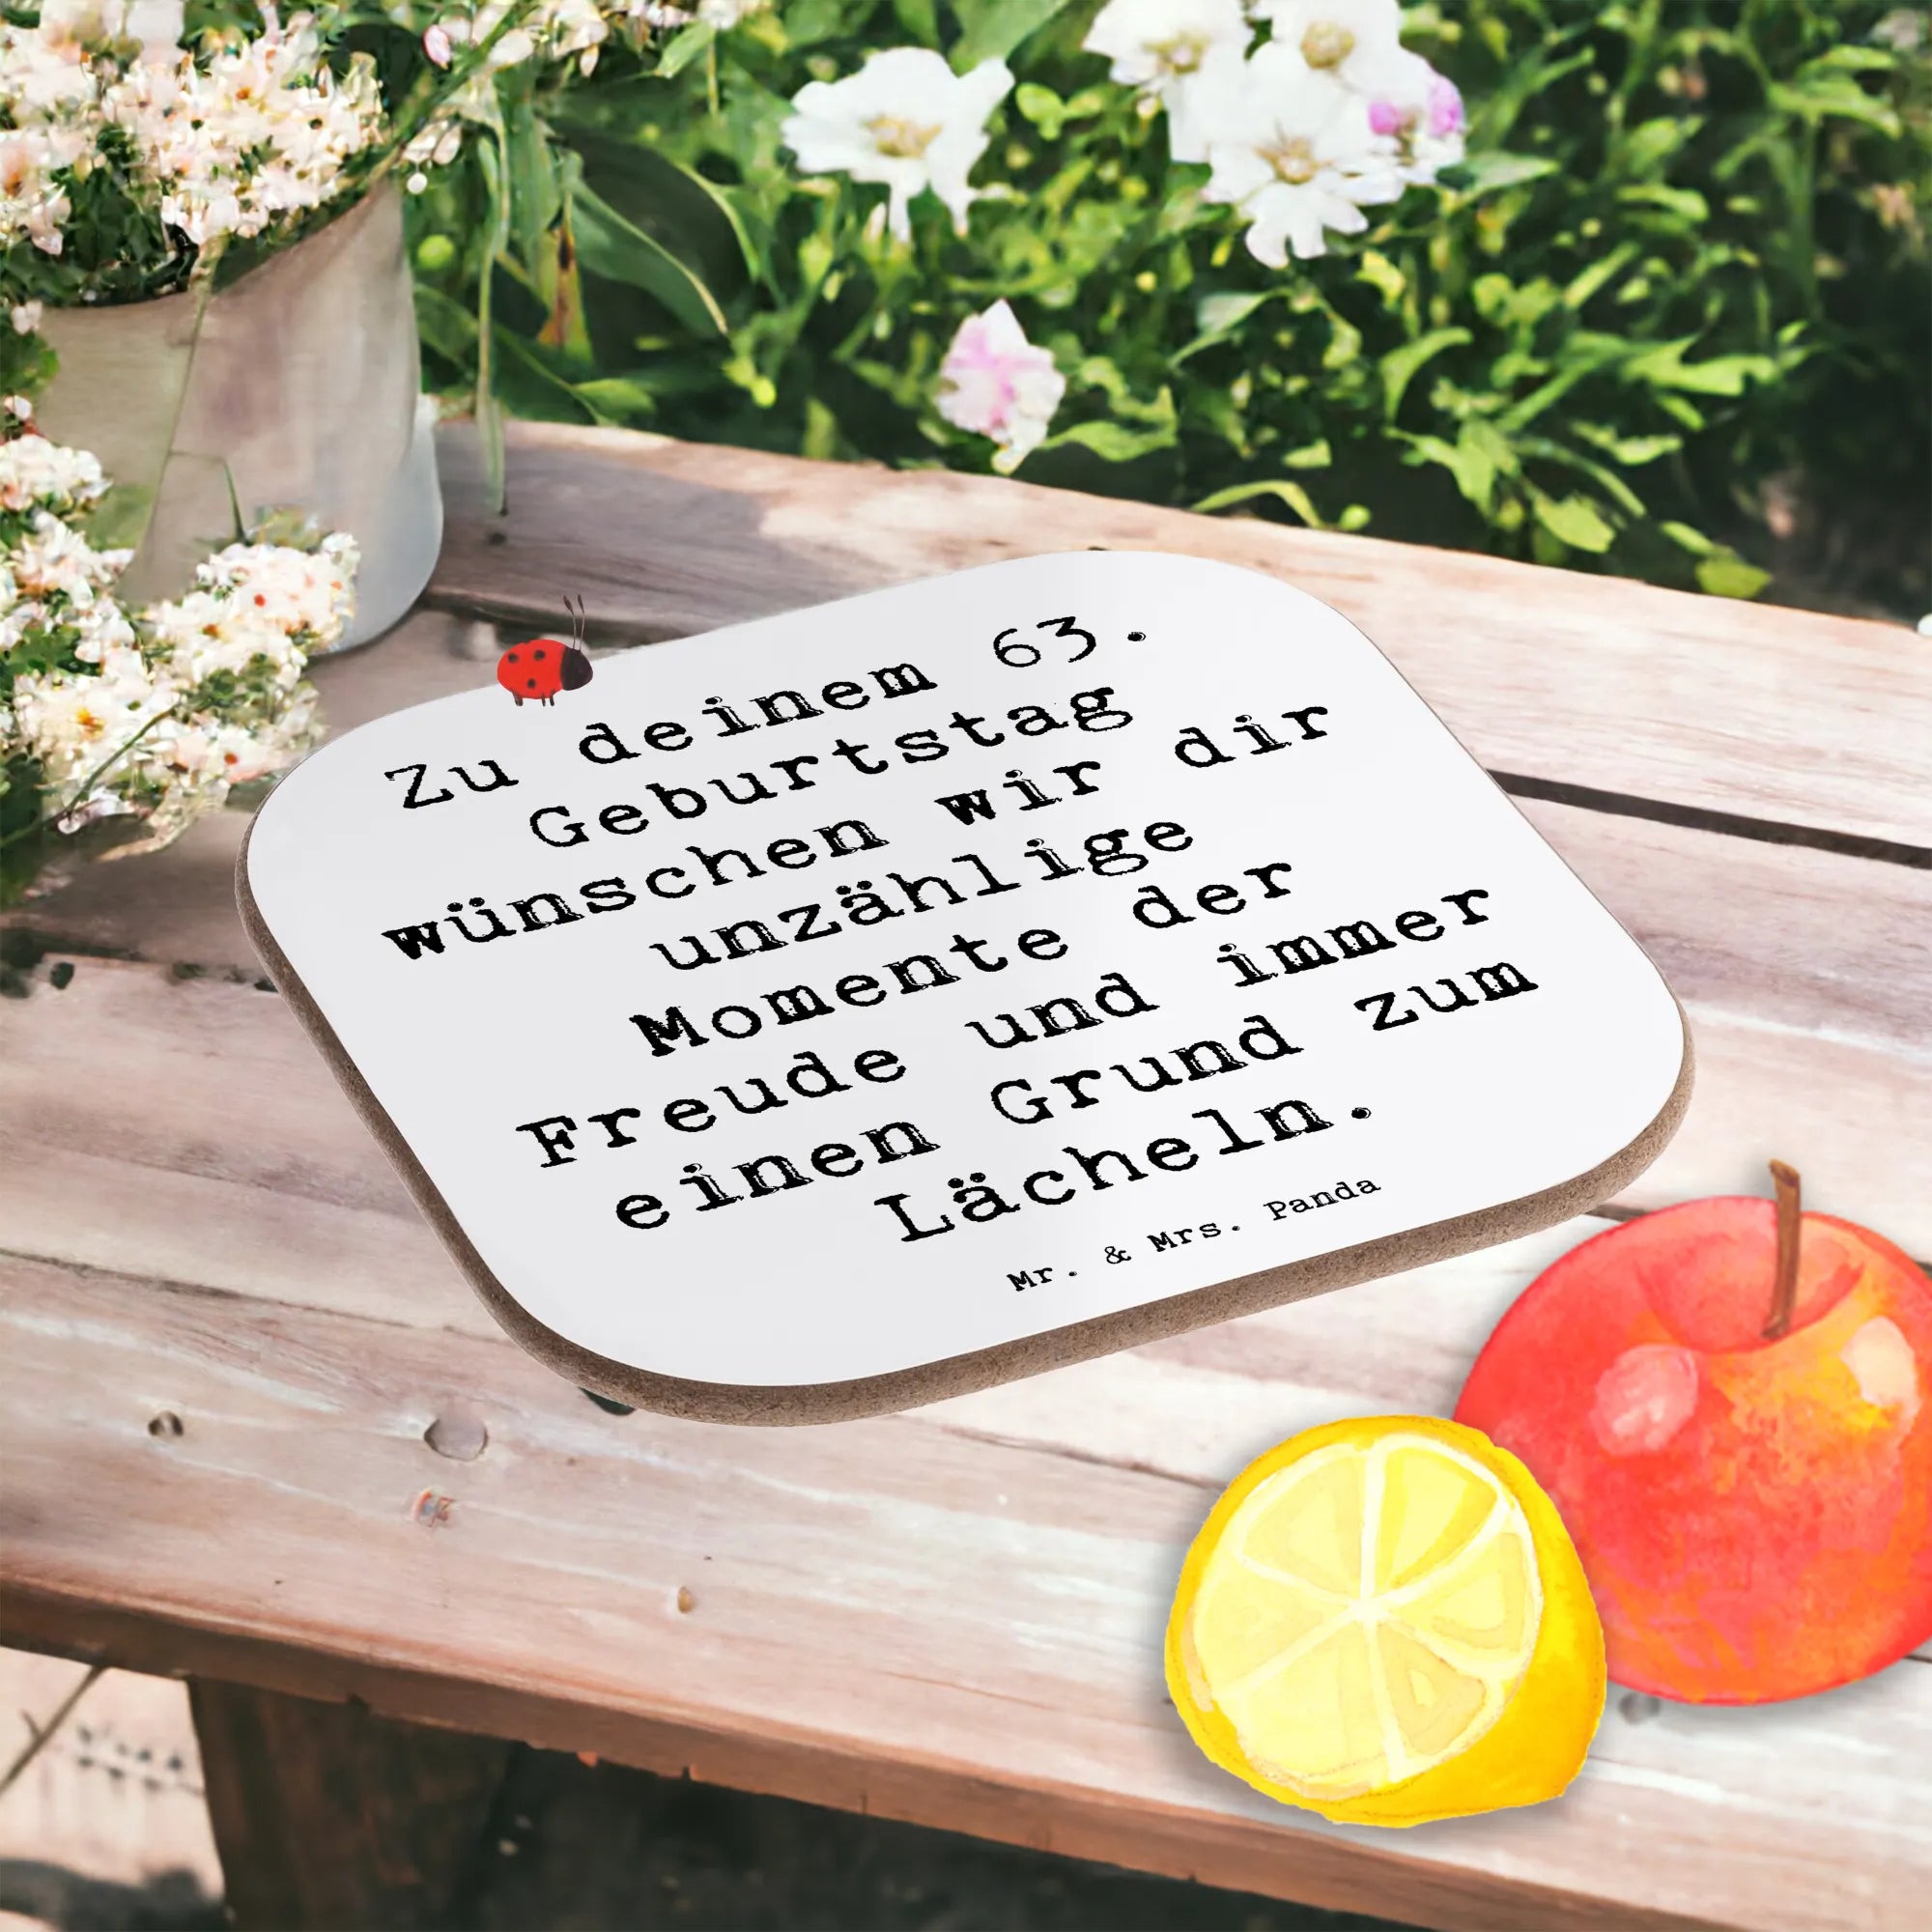 Zu deinem 63.
Geburtstag
wünschen wir dir
unzählige
Momente der
Freude und immer
einen Grund zum
Lächeln.
Mr. & Mrs. Panda